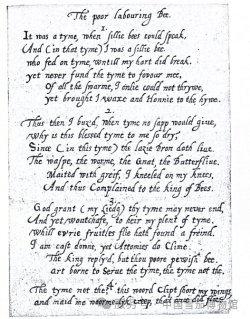 The poor labouring Bee.
1.
It was a tyme, when sillie bees could speak,
And (in that tyme) I was a sillie bee
who fed on tyme, untill my hart did break
yet never fund the tyme to favour mee,
Of all the swarme, I onlie could not thrywe,
yet brought I waxe and Honnie to the hywe.
2.
Thus then I buzd, when tyme no sapp would give,
why is this blessed tyme to me so dry,
Since (in this tyme) the lazie Dron doth liue
The waspe, the worme, the Gnat, the Butterfliue.
Maited with greif, I kneeled on my knees,
And thus Complained to the King of Bees.
3.
God grant (my Liedg) thy tyme may never end,
And yet vouchsafe, to heir my plent of tyme,
which evrie fruitles flie hath found a freind,
I am cast donne, yet Attomies do Clime.
The King replyd, but thou poore pewish bee.
art borne to Serue the tyme, the tyme not the.
4.
The tyme not the! this word Clipt short my wings,
and maid me creep, that once did flee